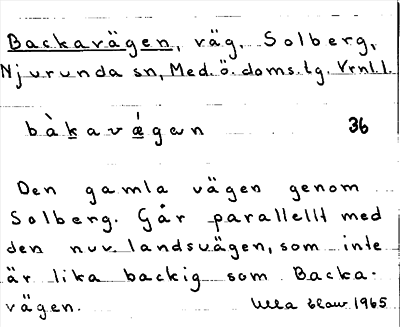 Backavägen, väg, Solberg,
Njurunda sn, Med. ö. doms. tg. Vrnl.l.
bàkavǽgen 36
Den gamla vägen genom
Solberg. Går parallellt med
den nuv. landsvägen, som inte
är lika backig som Backa-
vägen. Ulla 1965